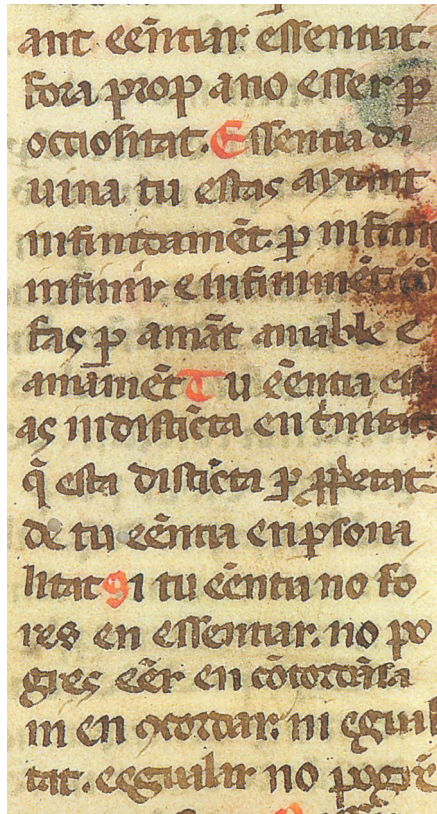 ant eēntiar essentiat.
fora prop a no esser ꝑ
occiositat. Essentia di
uina tu estas aytant
infinidamēt. ꝑ infinir
infinir e infinimēt. cō
fas ꝑ amāt amable e
amāmēt Tu eēntia est
as indistīcta en t̄nitat
q̄ esta distīcta ꝑ ꝓpietat
de tu eēntia en ꝑsona
litat Si tu eēntia no fo
res en essentiar. no po
gres eēr en cōcordāsa
ni en ꝯcordar. ni egual
tat. e egualar no pogrē